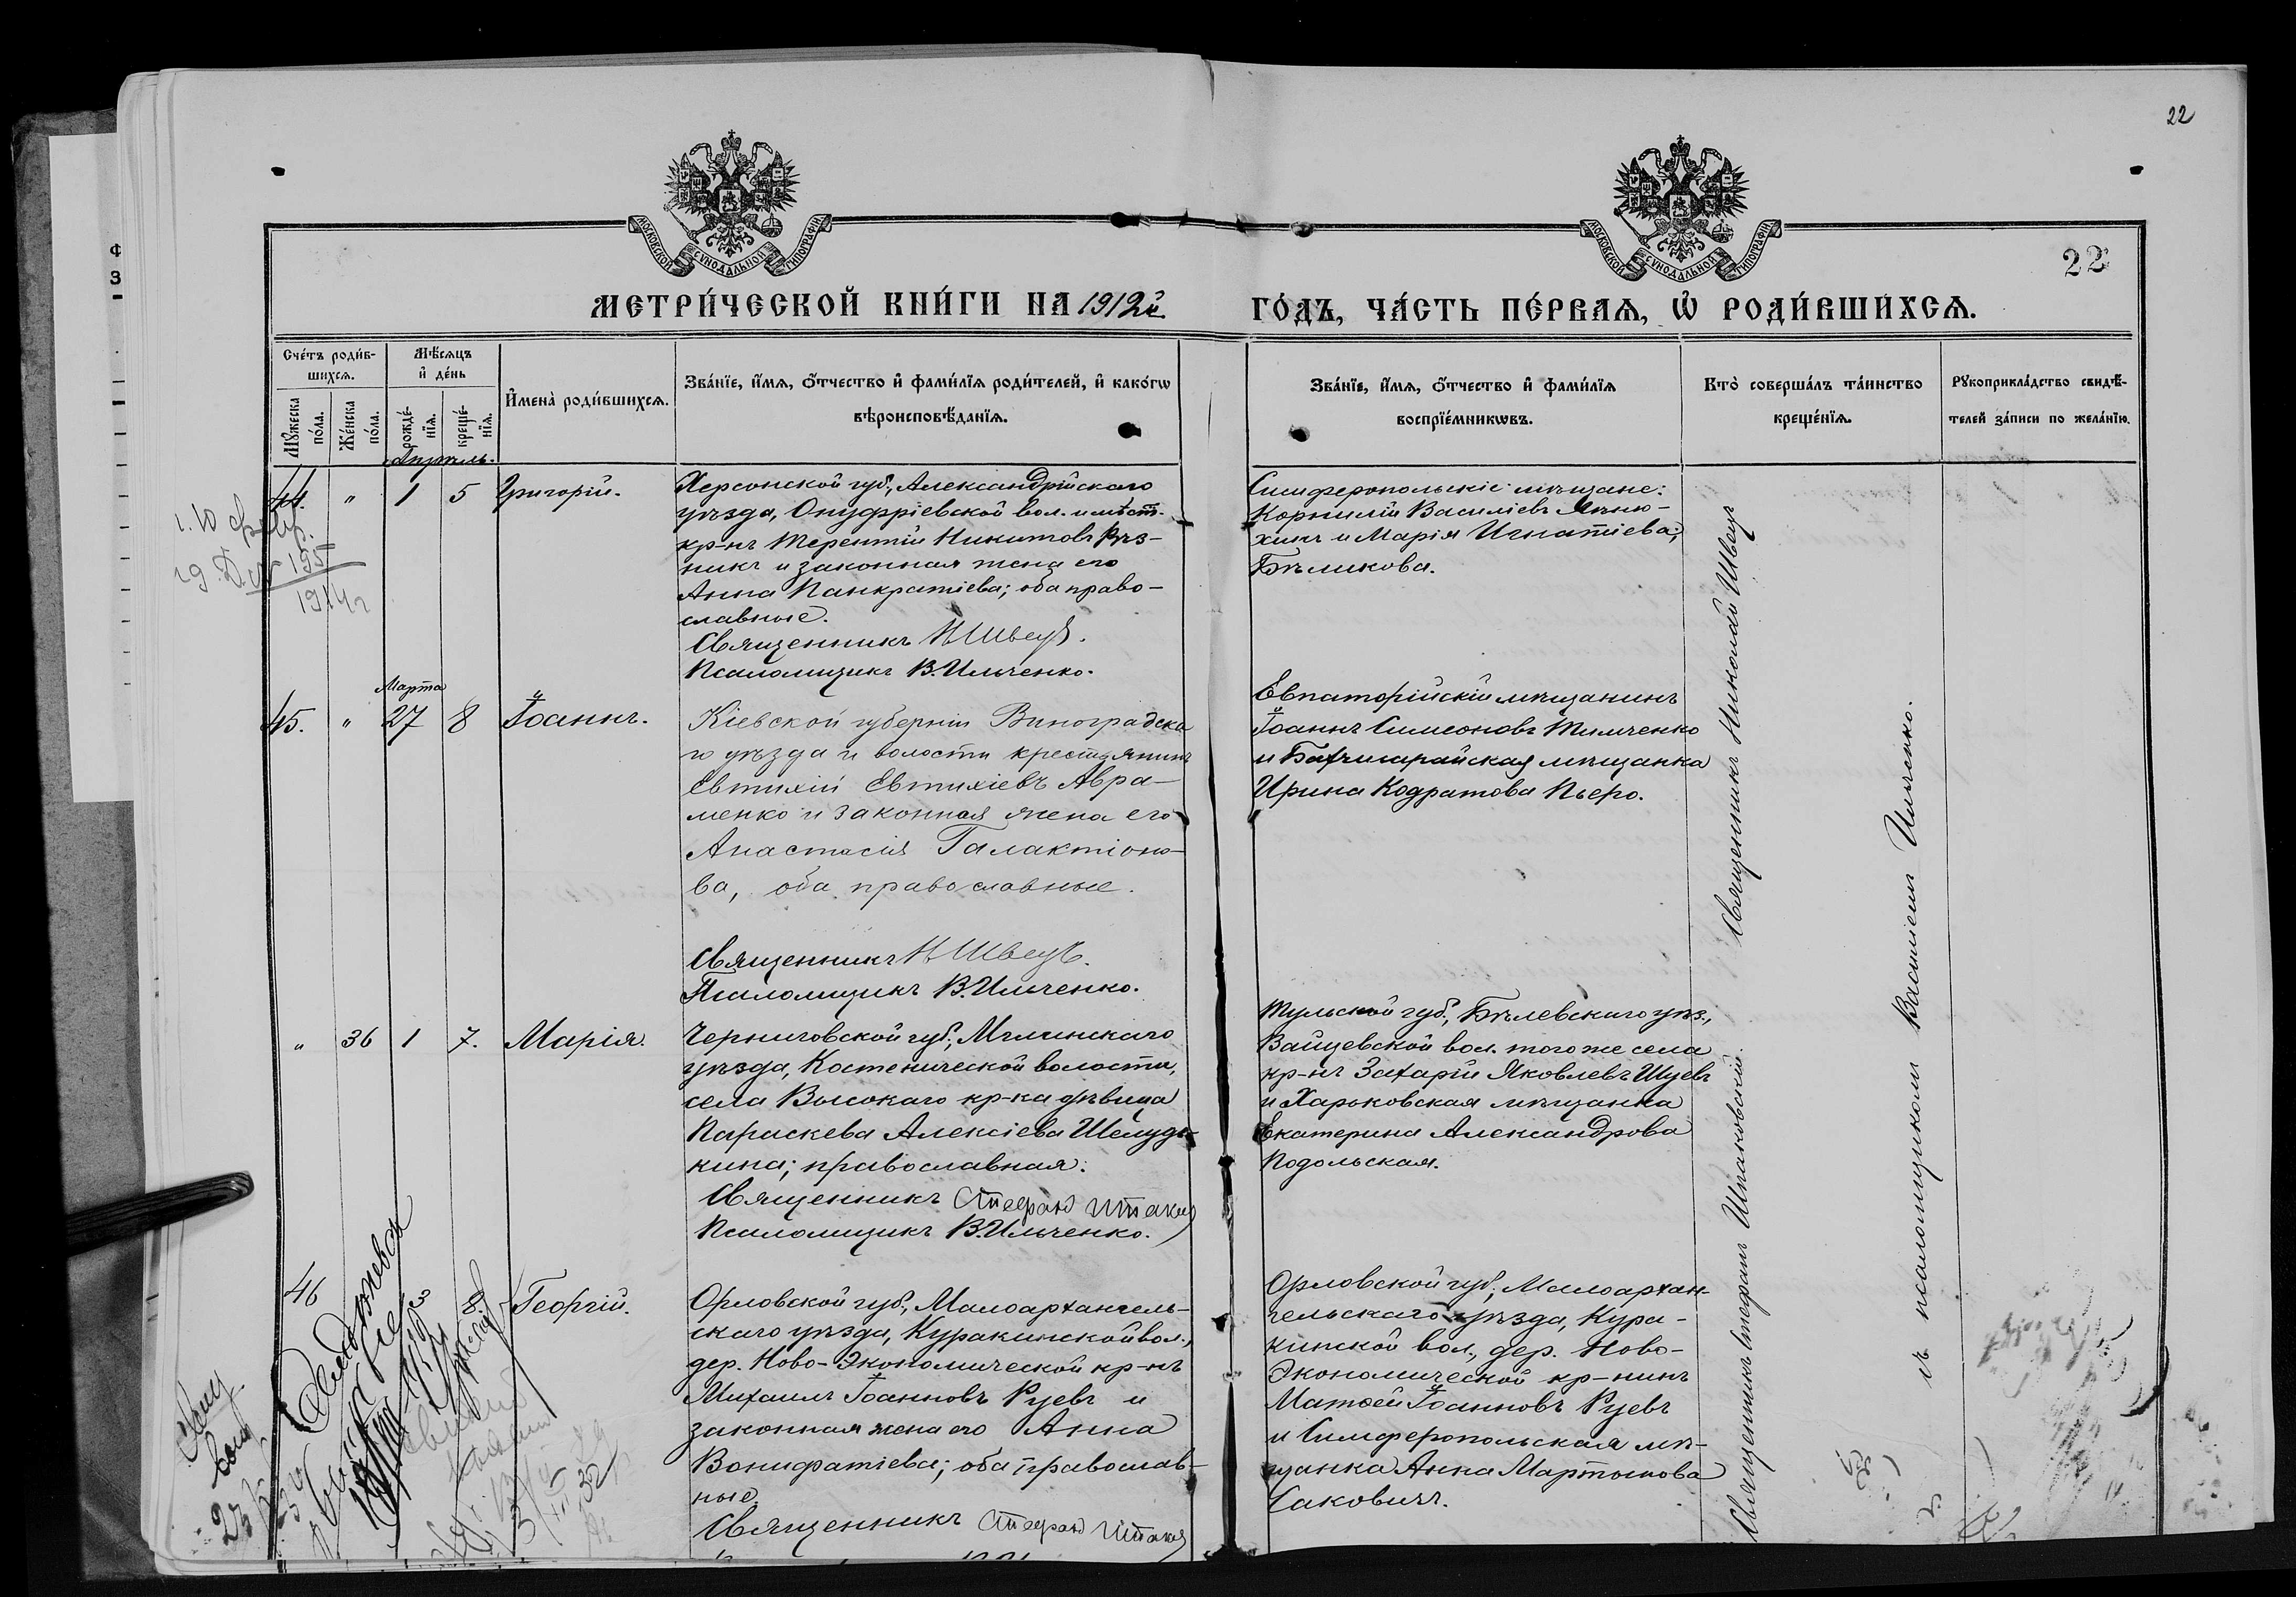 22
МОСКОВСКОЙ СѴНОДАЛЬНОЙ ТИПОГРАФІИ
МОСКОВСКОЙ СѴНОДАЛЬНОЙ ТИПОГРАФІИ
22
МЕТРИ́ЧЕСКОЙ КНИ́ГИ НА 1912й
ГО́ДЪ, ЧА́СТЬ ПЕ́РВАЯ, Ѡ҆ РОДИ́ВШИХСЯ.
Сче́тъ роди́в-
шихся.
Мꙋ́жеска по́ла.
Же́нска по́ла.
Мѣ́сяцъ
и҆ де́нь
рожде́-
нїя.
креще́-
нїя.
И҆мена̀ роди́вшихся.
Зва́нїе, и҆́мя, ѻ҆́тчество и҆ фами́лїя роди́телей, и҆ како́гѡ
вѣроисповѣ́данїя.
Зва́нїе, и҆́мя, ѻ҆́тчество и҆ фами́лїя
воспрїе́мникѡвъ.
Кто̀ соверша́лъ та́инство
креще́нїя.
Рꙋкоприкла́дство свидѣ́-
телей за́писи по жела́нїю.
Апрѣль.
44. " 1 5 Григорій.
Херсонской губ., Александрійскаго
уѣзда, Онуфріевской вол. и мѣст.
кр-нъ Терентій Никитовъ Рѣз-
никъ и законная жена его
Анна Панкратіева; оба право-
славные.
Священникъ Н Швецъ.
Псаломщикъ В. Ильченко.
Симферопольскіе мѣщане:
Корнилій Василіевъ
и Марія Игнатіева
Бѣликова.
1914г
Марта
45. " 27 8 Іоаннъ.
Кіевской губерніи Виноградска
го уѣзда и волости крестьянинъ
Евтихій Евтихіевъ Авра-
менко и законная жена его
Анастасія Галактіоно-
ва, оба православные.
Священникъ Н Швецъ.
Псаломщикъ В. Ильченко.
Евпаторійскій мѣщанинъ
Іоаннъ Симеоновъ Тимченко
и Бахчисарайская мѣщанка
Ирина Кодратова Пьеро.
" 36 1 7. Марія.
Черниговской губ., Мглинскаго
уѣзда, Костенической волости,
села Высокаго кр-ка дѣвица
Параскева Алексіева Шелудь-
кина; православная.
Священникъ Стефанъ Шпаков
Псаломщикъ В. Ильченко.
Тульской губ., Бѣлевскаго уѣз.,
Вайцевской вол. того же села
кр-нъ Захарій Яковлевъ
и Харьковская мѣщанка
Екатерина Александрова
Подольская.
46 3 8. Георгій.
Орловской губ., Малоархангель-
скаго уѣзда, Куракинской вол.,
дер. Ново-Экономической кр-нъ
Михаилъ Іоанновъ Руевъ и
законная жена его Анна
Вонифатіева; оба православ-
ные.
Священникъ Стефанъ Шпаков
Орловской губ., Малоархан-
гельскаго уѣзда, Кура-
кинской вол., дер. Ново-
Экономической кр-нинъ
Матѳей Іоанновъ Руевъ
и Симферопольская мѣ-
щанка Анна Мартынова
Саковичъ.
Священникъ Николай Швецъ
Священникъ Стефанъ Шпаковскій.
съ псаломщикомъ Василіемъ Ильченко.